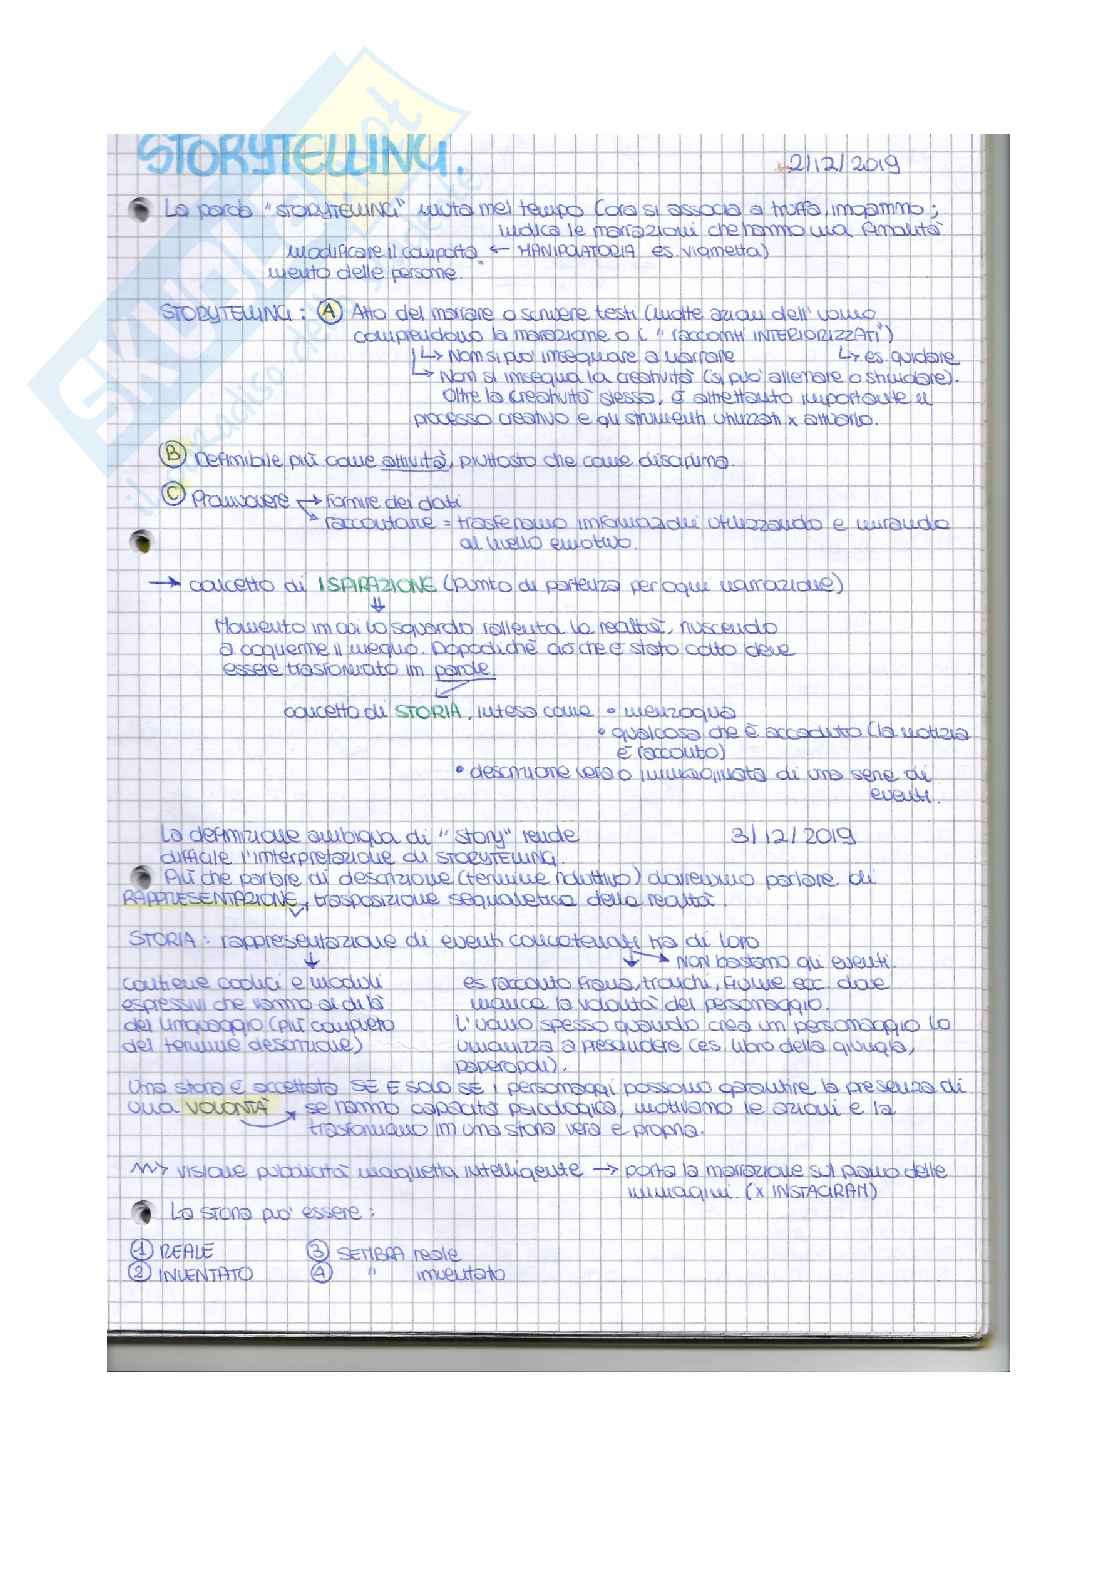 STORYTELLING.
2/12/2019
La parola "STORYTELLING" muta nel tempo (ora si associa a truffa, inganno;
indica le narrazioni che hanno una finalità
modificare il comporta ← MANIPOLATORIA es. vignetta)
mento delle persone.
STORYTELLING: A Atto del narrare o scrivere testi (molte azioni dell'uomo
comprendono la narrazione o i "racconti INTERIORIZZATI")
↳ Non si può insegnare a narrare ↳ es. guidare
↳ Non si insegna la creatività (si può allenare o stimolare).
Oltre la creatività stessa, è altrettanto importante il
processo creativo e gli strumenti utilizzati x attuarlo.
B Definibile più come attività, piuttosto che come disciplina.
C Promuovere → fornire dei dati
raccontare = trasferiamo informazioni utilizzando e mirando
al livello emotivo.
→ concetto di ISPIRAZIONE (punto di partenza per ogni narrazione)
Momento in cui lo sguardo rallenta la realtà, riuscendo
a coglierne il meglio. Dopodiché ciò che è stato colto deve
essere trasformato in parole.
concetto di STORIA, intesa come • menzogna
• qualcosa che è accaduto (la notizia
è racconto)
• descrizione vera o immaginata di una serie di
eventi.
La definizione ambigua di "story" rende 3/12/2019
difficile l'interpretazione di STORYTELLING.
Più che parlare di descrizione (termine riduttivo) dovremmo parlare di
RAPPRESENTAZIONE, trasposizione segnaletica della realtà.
STORIA: rappresentazione di eventi concatenati tra di loro
→ NON bastano gli eventi.
contiene codici e moduli es racconto frana, tronchi, fiume ecc. dove
espressivi che vanno al di là manca la volontà del personaggio.
del linguaggio (più completo L'uomo spesso quando crea un personaggio lo
del termine descrizione) umanizza a prescindere (es. libro della giungla,
paperopoli).
Una storia è accettata SE E SOLO SE i personaggi possono garantire la presenza di
una VOLONTÀ → se hanno capacità psicologica, motivano le azioni e la
trasformano in una storia vera e propria.
visione pubblicità maglietta intelligente → porta la narrazione sul piano delle
immagini. (x INSTAGRAM)
La storia può essere:
1 REALE 3 SEMBRA reale
2 INVENTATO 4 " inventato